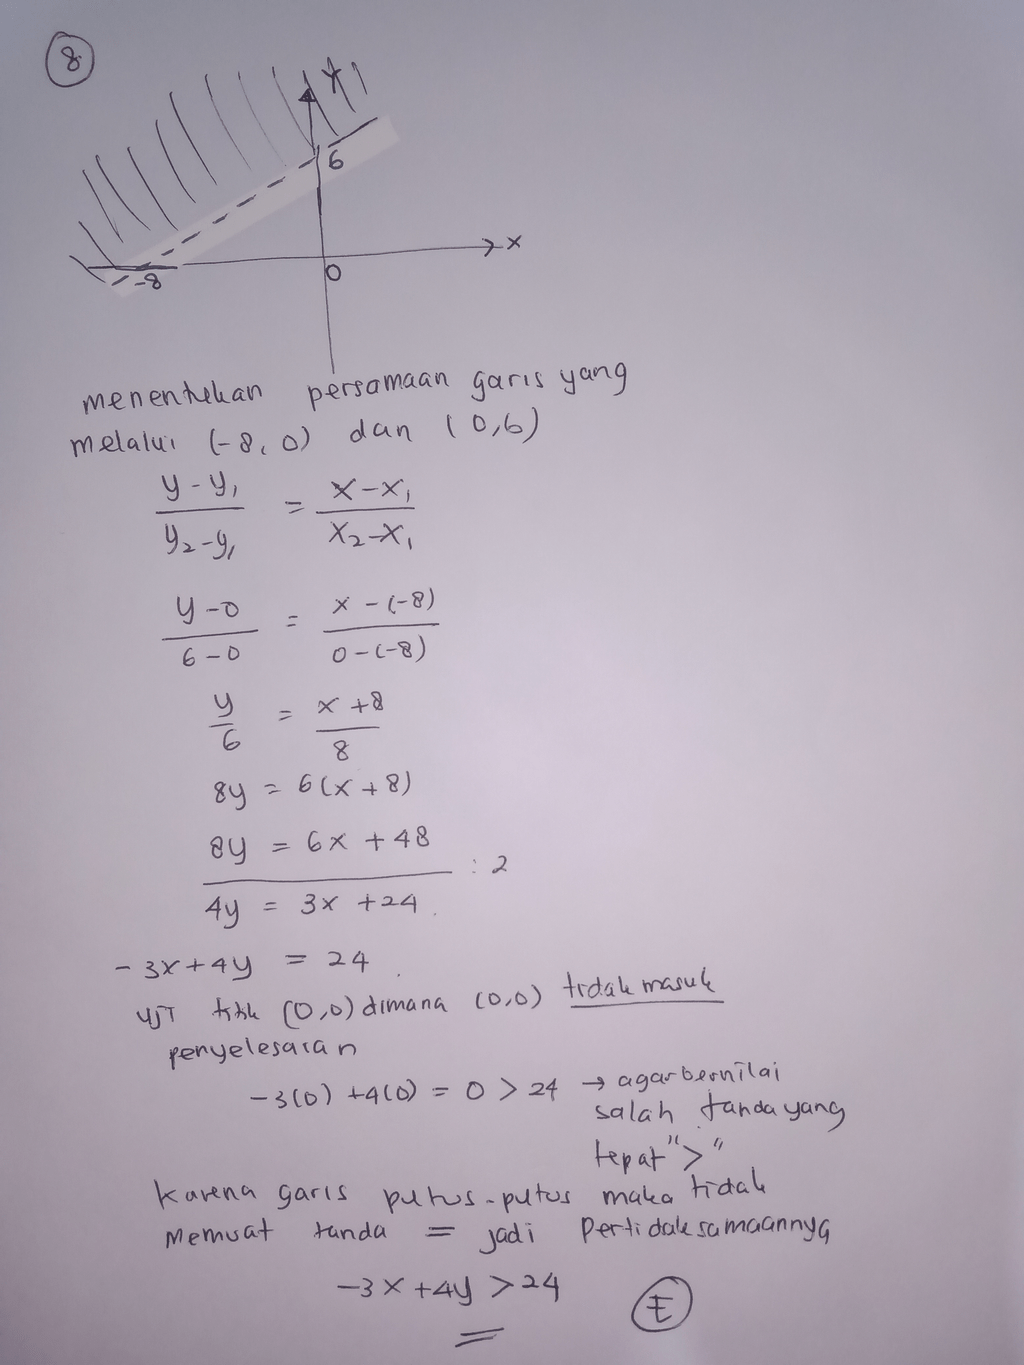 8
Y
6
X
-8
0
menentukan persamaan garis yang
melalui (-8,0) dan (0,6)
y-y₁ / y₂-y₁ = x-x₁ / x₂-x₁
y-0 / 6-0 = x-(-8) / 0-(-8)
y/6 = x+8 / 8
8y = 6(x+8)
8y = 6x + 48
: 2
4y = 3x +24
-3x+4y = 24
uji titik (0,0) dimana (0,0) tidak masuk
penyelesaian
-3(0) +4(0) = 0 > 24 → agar bernilai
salah tanda yang
tepat ">"
karena garis putus-putus maka tidak
memuat tanda = jadi pertidaksamaannya
-3x +4y >24
E